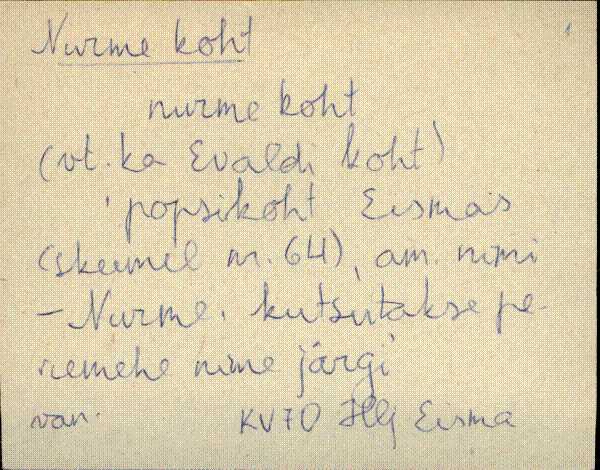 Nurme koht
nurme koht
(vt. ka Evaldi koht)
'popsikoht Eismas
(skeemil nr. 64), am. nimi
– Nurme. kutsutakse pe-
remehe nime järgi
van. KV70 Hlj Eisma